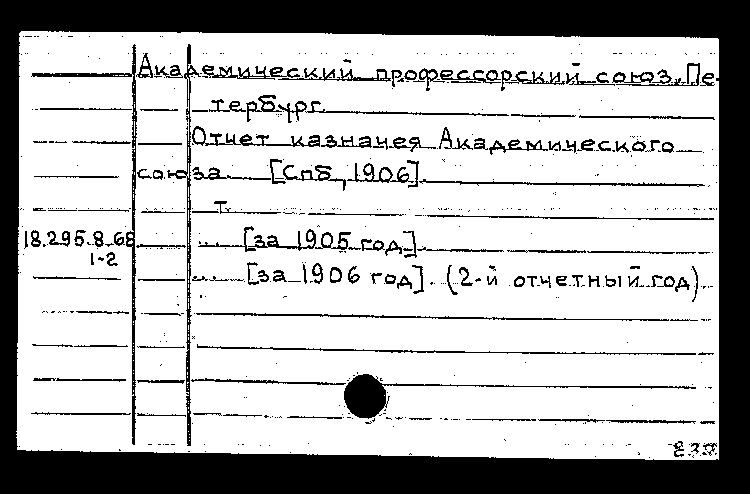 Академический профессорский союз. Пе-
тербург.
Отчет казначея Академического
союза. [Спб, 1906].
т.
18.295.8.68 ... [за 1905 год].
1-2 ... [за 1906 год]. (2-й отчетный год).